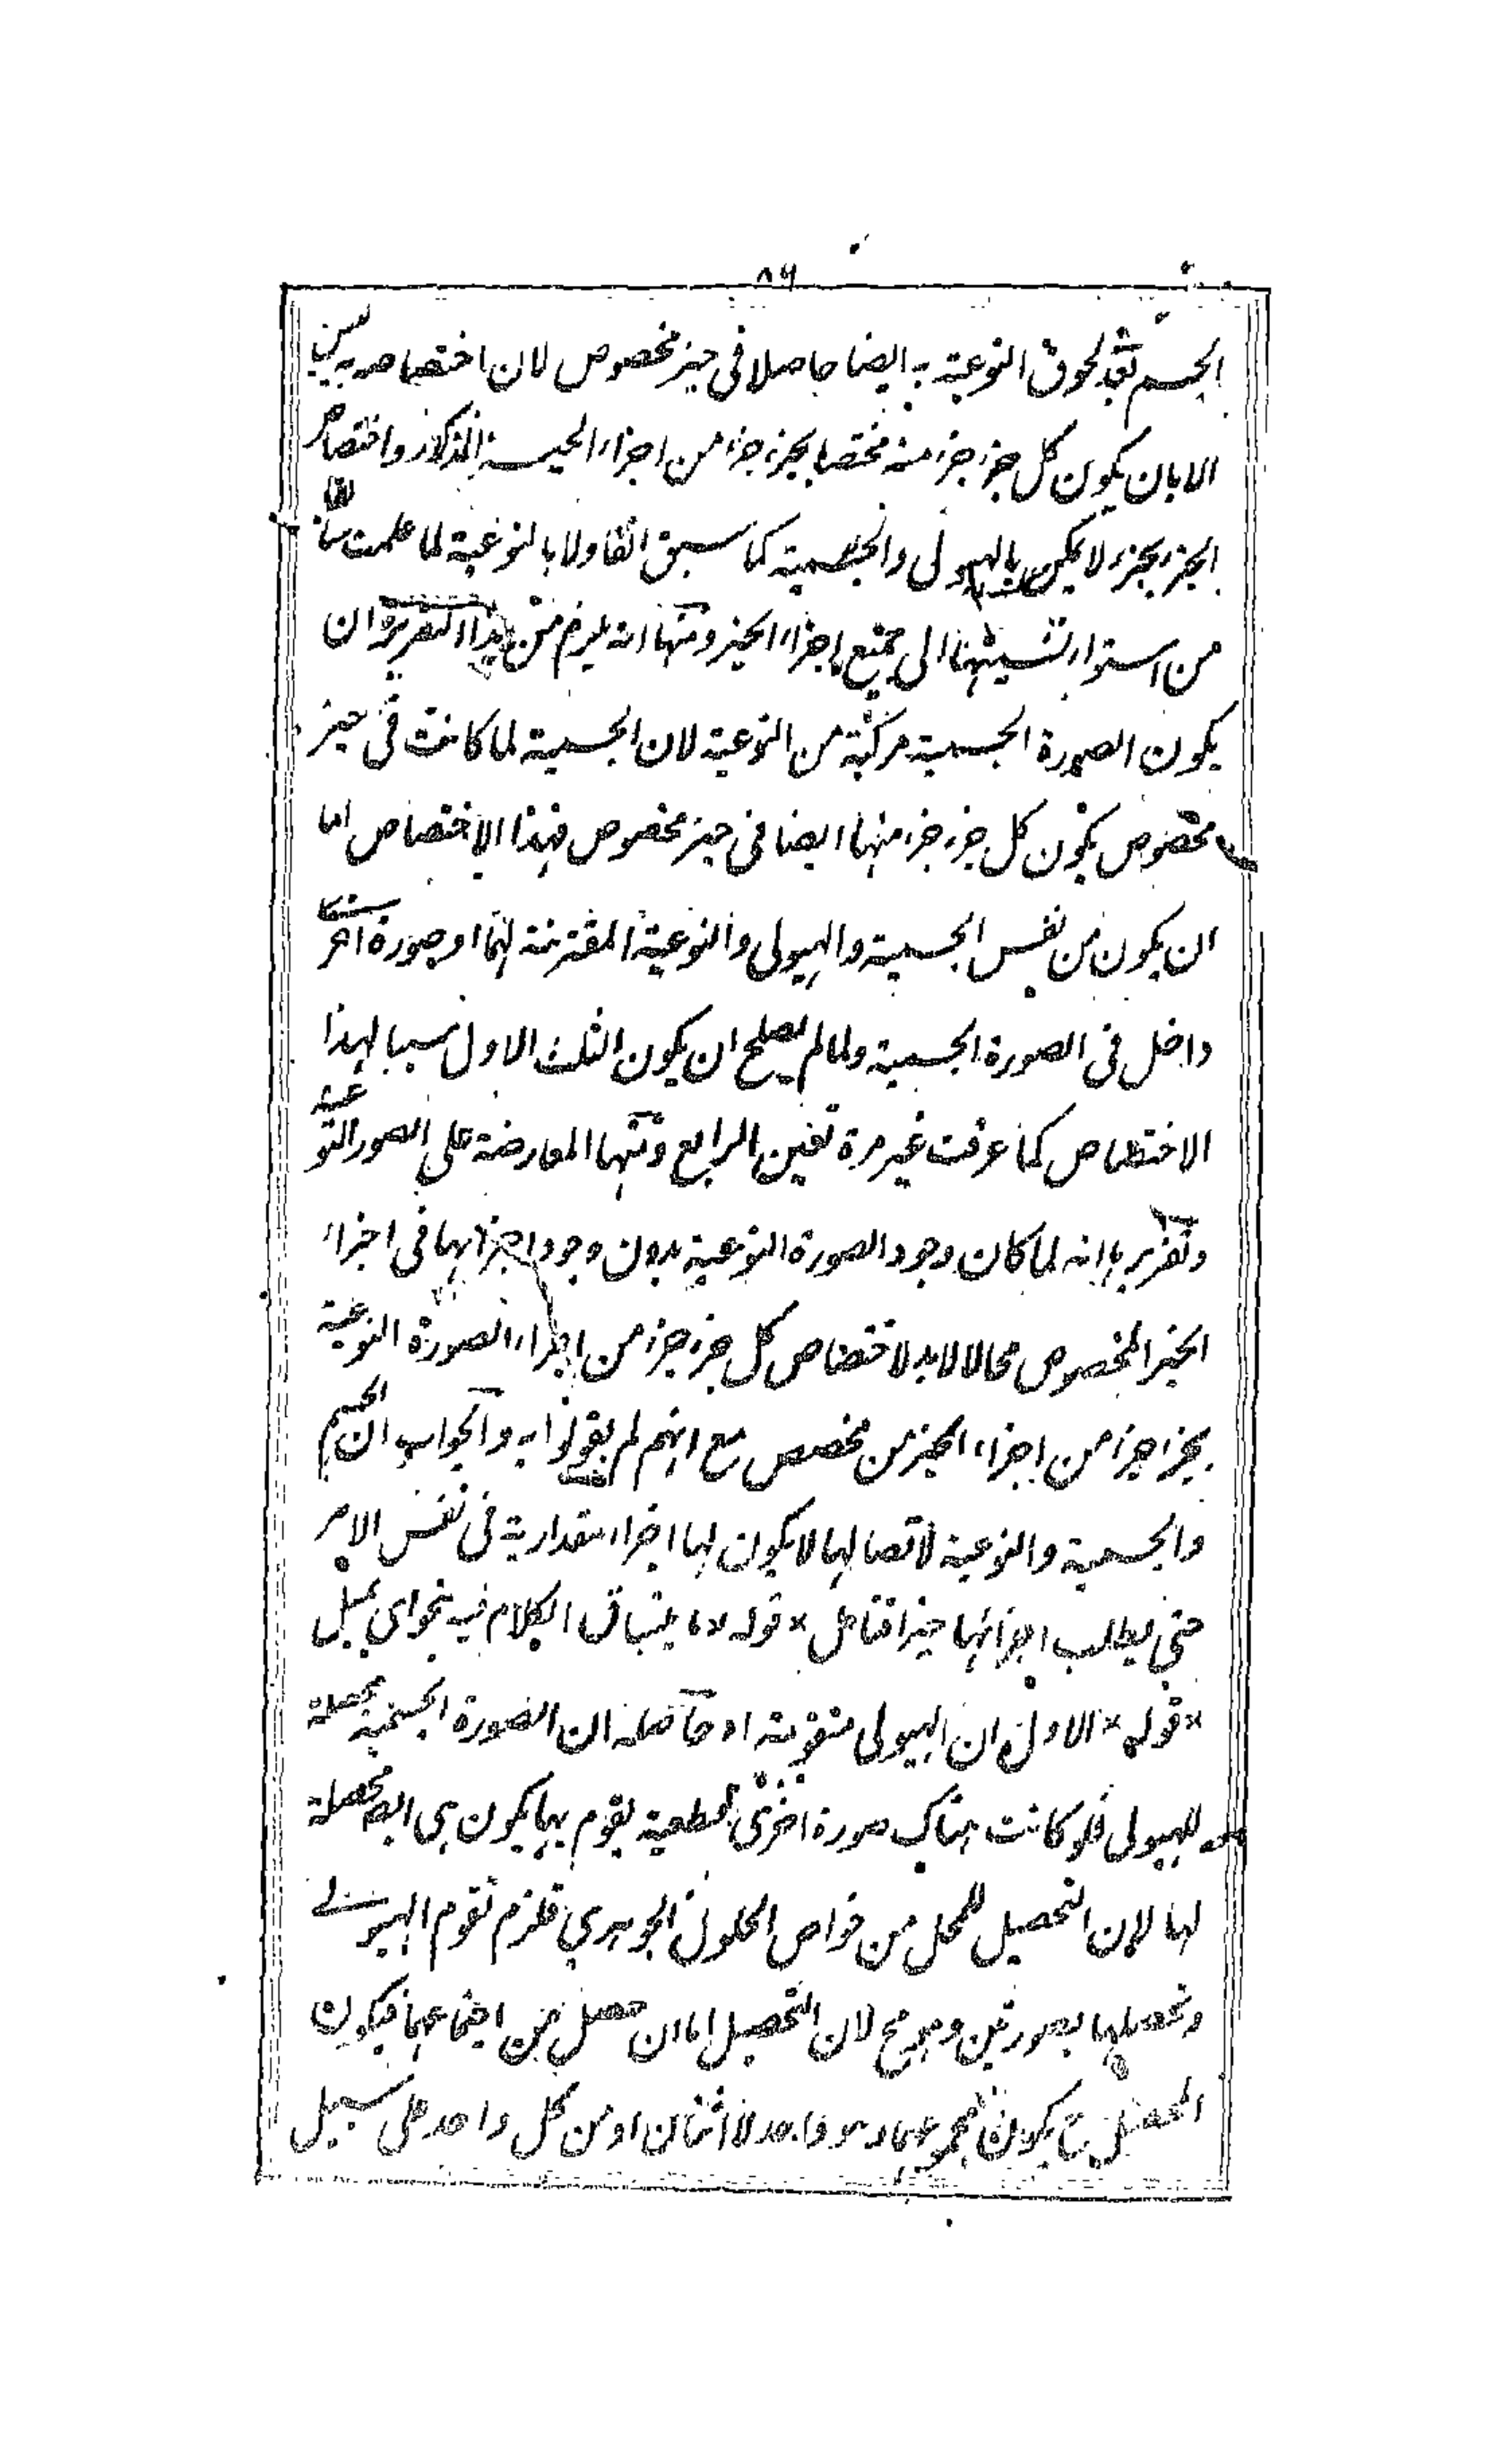 ٨٦
الجسم بعد لحوق النوعية به ايضا حاصلا فى حيز مخصوص لان اختصاصه به ليس
الا بان يكون كل جزء جزء منه مختصا بجزء جزء من اجزاء الحيز المذكور واختصاص
الجزء بجزء لا يمكن بالهيولى والجسمية كما سبق آنفا ولا بالنوعية لما علمت سابقا
من استواء نسبتها الى جميع اجزاء الحيز ومنها انه يلزم من هذا التقرير ان
يكون الصورة الجسمية مركبة من النوعية لان الجسمية لما كانت فى حيز
مخصوص يكون كل جزء جزء منها ايضا فى حيز مخصوص فهذا الاختصاص اما
ان يكون من نفس الجسمية والهيولى والنوعية المقترنة لهما او صورة اخرى
داخل فى الصورة الجسمية ولما لم يصلح ان يكون الثلث الاول سببا لهذا
الاختصاص كما عرفت غير مرة تعين الرابع ومنها المعارضة على الصور النوعية
وتقريرها انه لما كان وجود الصورة النوعية بدون وجود اجزائها فى اجزاء
الحيز المخصوص محالا لا بد لاختصاص كل جزء جزء من اجزاء الصورة النوعية
بجزء جزء من اجزاء الحيز من مخصص مع انهم لم يقولوا به والجواب ان الجسم
والجسمية والنوعية لاتصالها لا يكون لها اجزاء مقدارية فى نفس الامر
حتى يطلب اجزائها حيزا فتامل * قوله * ما ينساق الكلام فيه نحو اى يميل
* قوله * الاول ان الهيولى متقومة اه حاصله ان الصورة الجسمية محصلة
للهيولى فلو كانت هناك صورة اخرى قطعية يقوم بها يكون هى ايضا محصلة
لها لان التحصيل للمحل من خواص الحلول الجوهرى فلزم تقوم الهيولى
وتحصلها بصورتين وهو مح لان التحصيل اما ان حصل من اجتماعهما فيكون
المحصل ح يكون مجموعهما وهو واحد لا اثنان او من كل واحد على سبيل